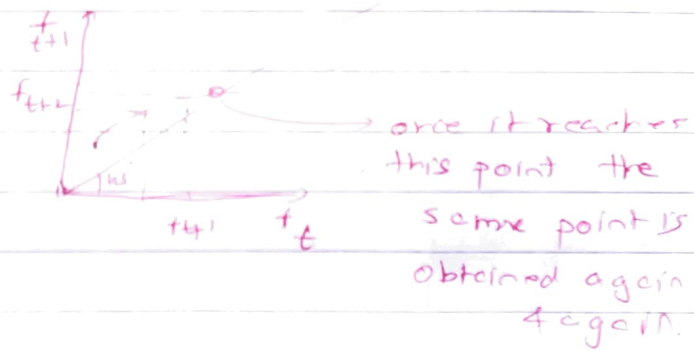 f t+1
f t+2
45
f t+1
f t
once it reaches
this point the
same point is
obtained again
& again.